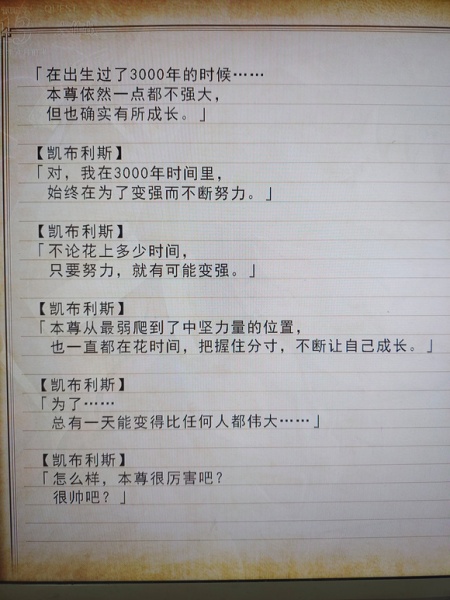 「在出生过了3000年的时候……
本尊依然一点都不强大，
但也确实有所成长。」
【凯布利斯】
「对，我在3000年时间里，
始终在为了变强而不断努力。」
【凯布利斯】
「不论花上多少时间，
只要努力，就有可能变强。」
【凯布利斯】
「本尊从最弱爬到了中坚力量的位置，
也一直都在花时间，把握住分寸，不断让自己成长。」
【凯布利斯】
「为了……
总有一天能变得比任何人都伟大……」
【凯布利斯】
「怎么样，本尊很厉害吧？
很帅吧？」